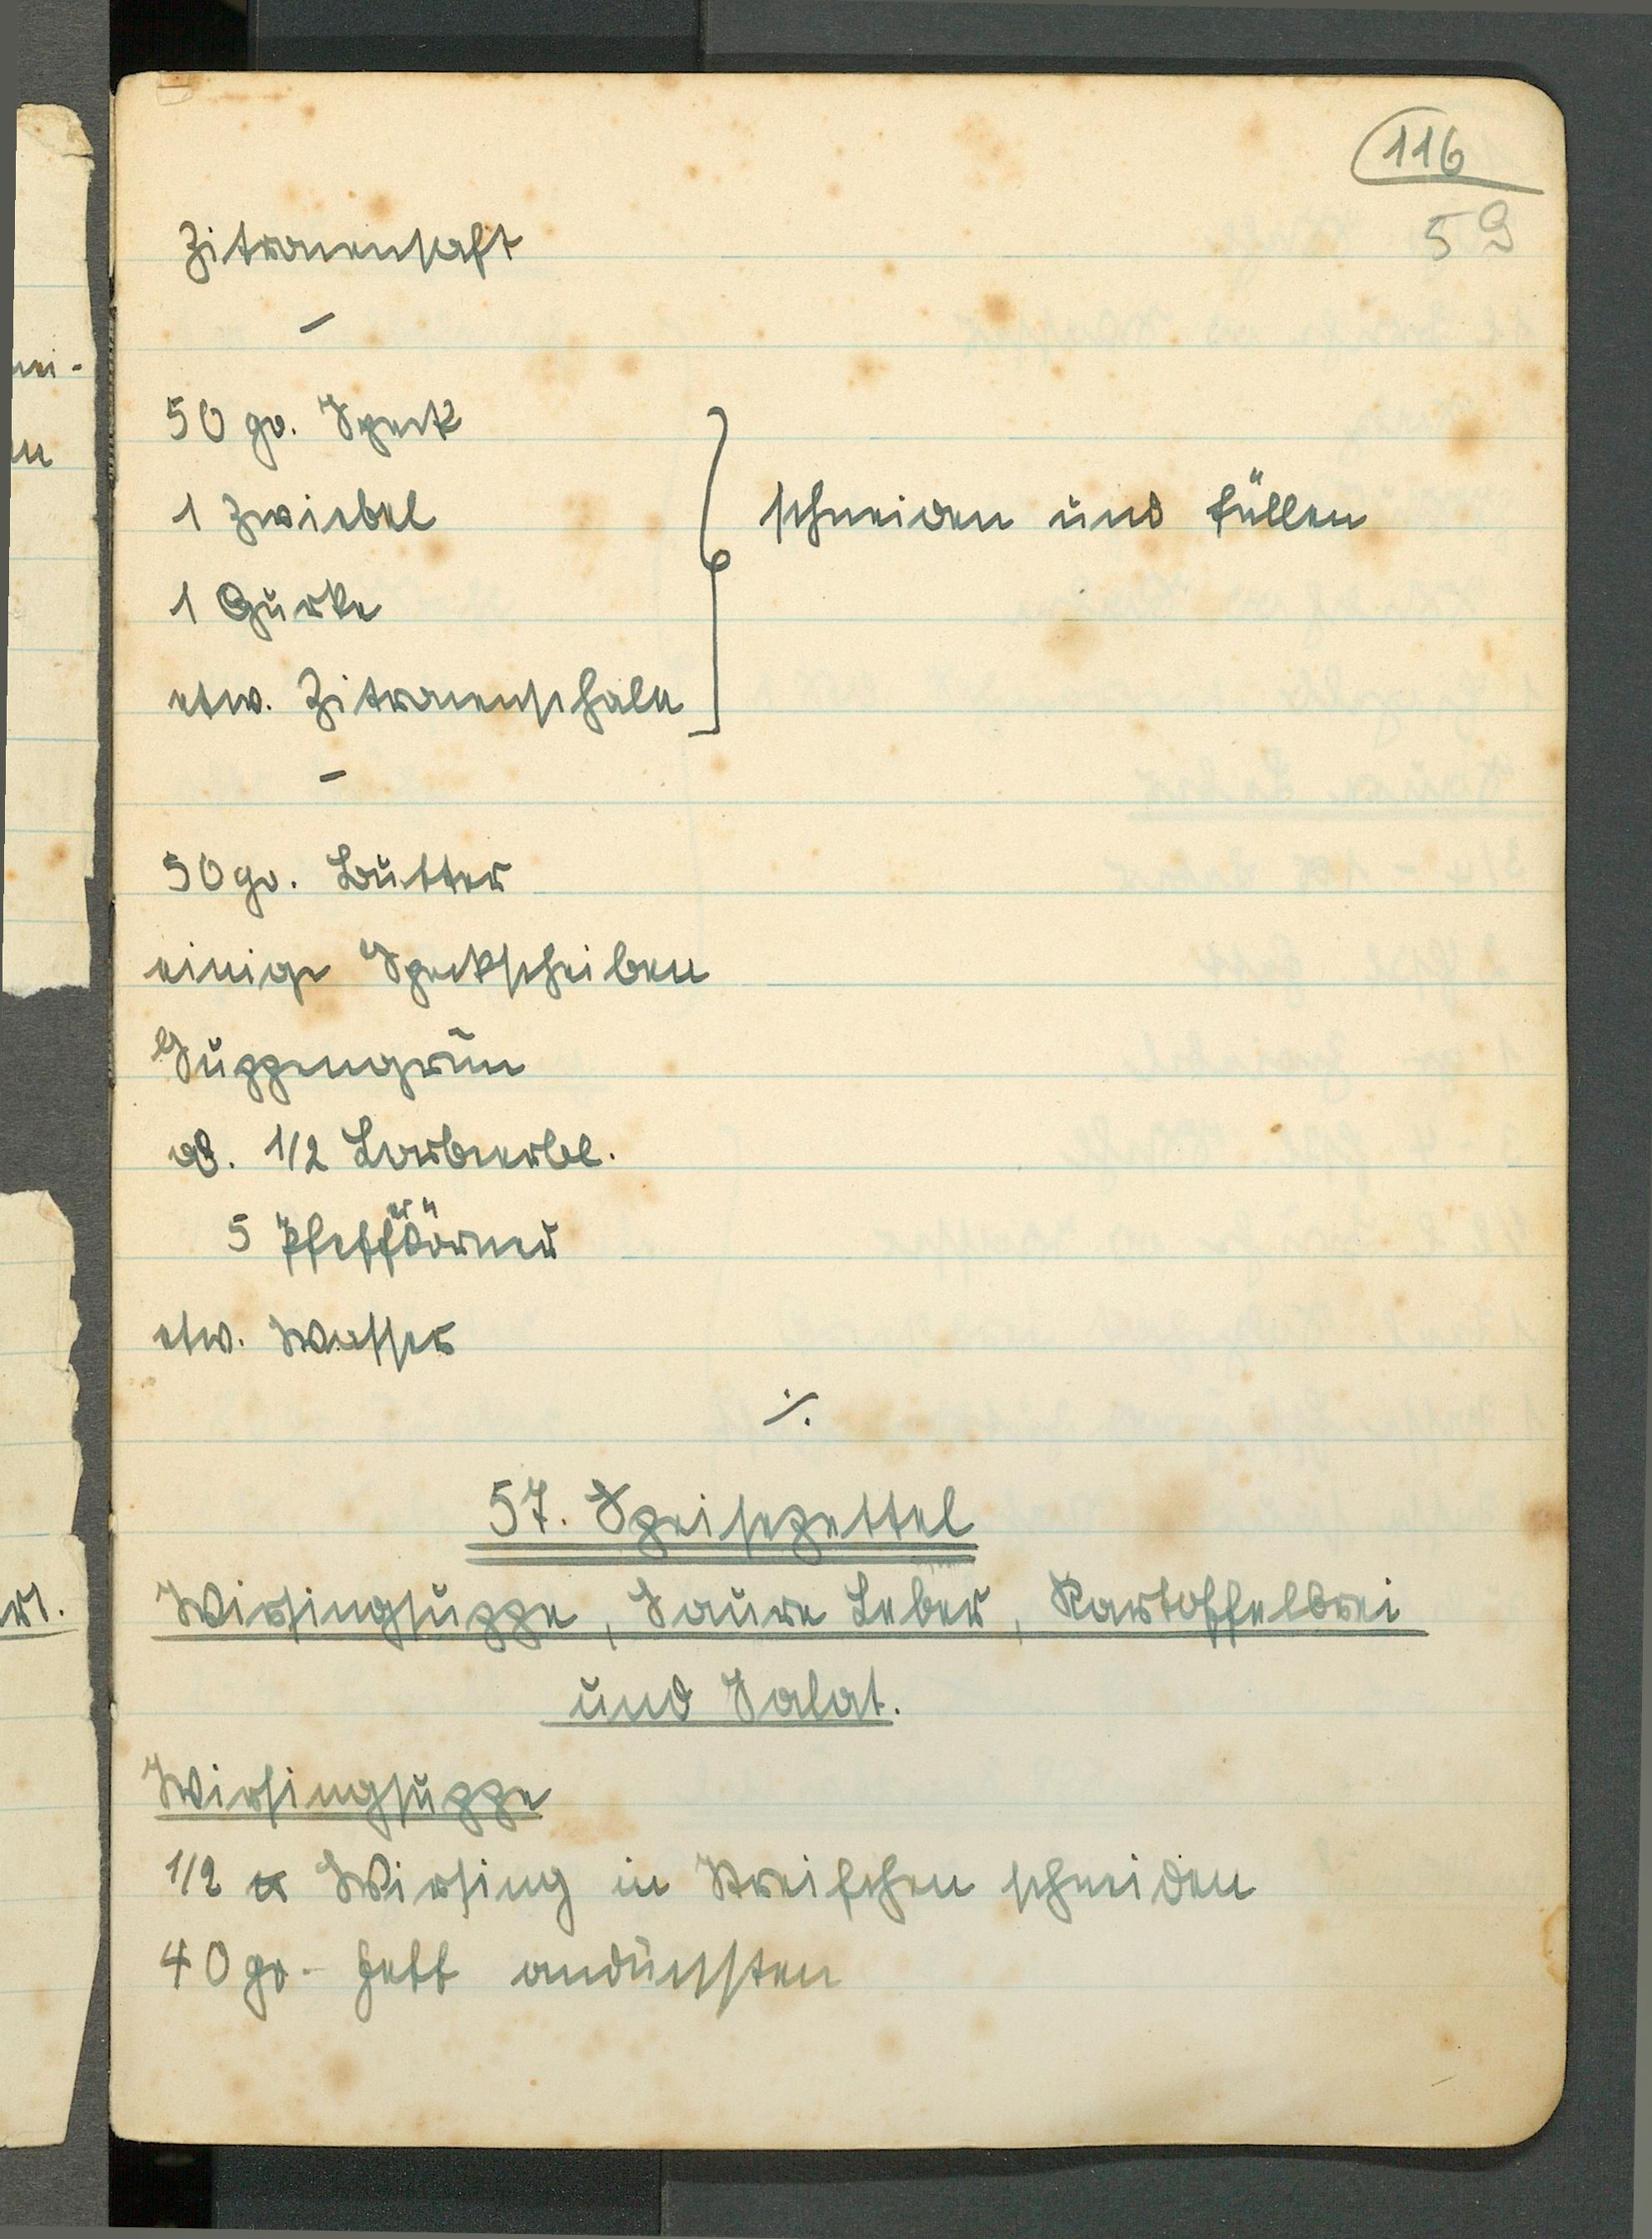 116
59
Zitronensaft
–
50 gr. Speck
1 Zwiebel
schneiden und füllen
1 Gurke
etw. Zitronenschale
–
50 gr. Butter
einige Speckscheiben
Suppengrün
od. 1/2 Lorbeerbl.
5 Pfefferkörner
etw. Wasser
./.
57. Speisezettel
Wirsingsuppe, Saure Leber, Kartoffelbrei
und Salat.
Wirsingsuppe
1/2 Wirsing in Streifchen schneiden
40 gr. Fett andünsten